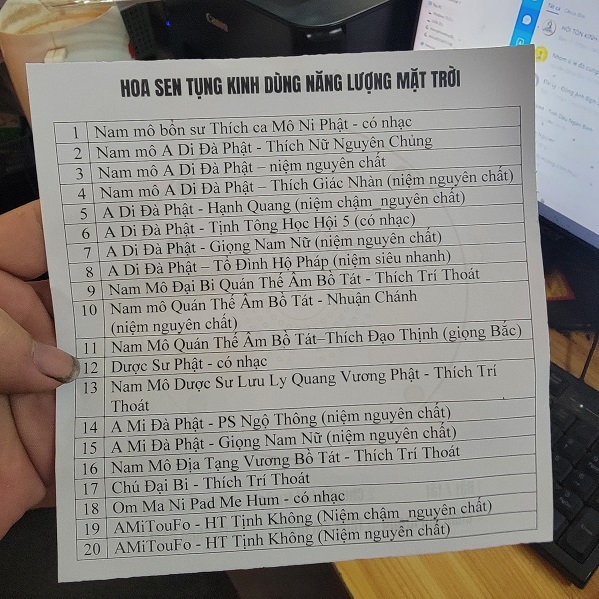 HOA SEN TỤNG KINH DÙNG NĂNG LƯỢNG MẶT TRỜI
1 Nam mô bổn sư Thích ca Mô Ni Phật - có nhạc
2 Nam mô A Di Đà Phật - Thích Nữ Nguyên Chủng
3 Nam mô A Di Đà Phật – niệm nguyên chất
4 Nam mô A Di Đà Phật – Thích Giác Nhàn (niệm nguyên chất)
5 A Di Đà Phật - Hạnh Quang (niệm chậm_nguyên chất)
6 A Di Đà Phật - Tịnh Tông Học Hội 5 (có nhạc)
7 A Di Đà Phật - Giọng Nam Nữ (niệm nguyên chất)
8 A Di Đà Phật – Tổ Đình Hộ Pháp (niệm siêu nhanh)
9 Nam Mô Đại Bi Quán Thế Âm Bồ Tát - Thích Trí Thoát
10 Nam mô Quán Thế Âm Bồ Tát - Nhuận Chánh
(niệm nguyên chất)
11 Nam Mô Quán Thế Âm Bồ Tát–Thích Đạo Thịnh (giọng Bắc)
12 Dược Sư Phật - có nhạc
13 Nam Mô Dược Sư Lưu Ly Quang Vương Phật - Thích Trí
Thoát
14 A Mi Đà Phật - PS Ngộ Thông (niệm nguyên chất)
15 A Mi Đà Phật - Giọng Nam Nữ (niệm nguyên chất)
16 Nam Mô Địa Tạng Vương Bồ Tát - Thích Trí Thoát
17 Chú Đại Bi - Thích Trí Thoát
18 Om Ma Ni Pad Me Hum - có nhạc
19 AMiTouFo - HT Tịnh Không (Niệm chậm_nguyên chất)
20 AMiTouFo - HT Tịnh Không (Niệm nguyên chất)
Canon